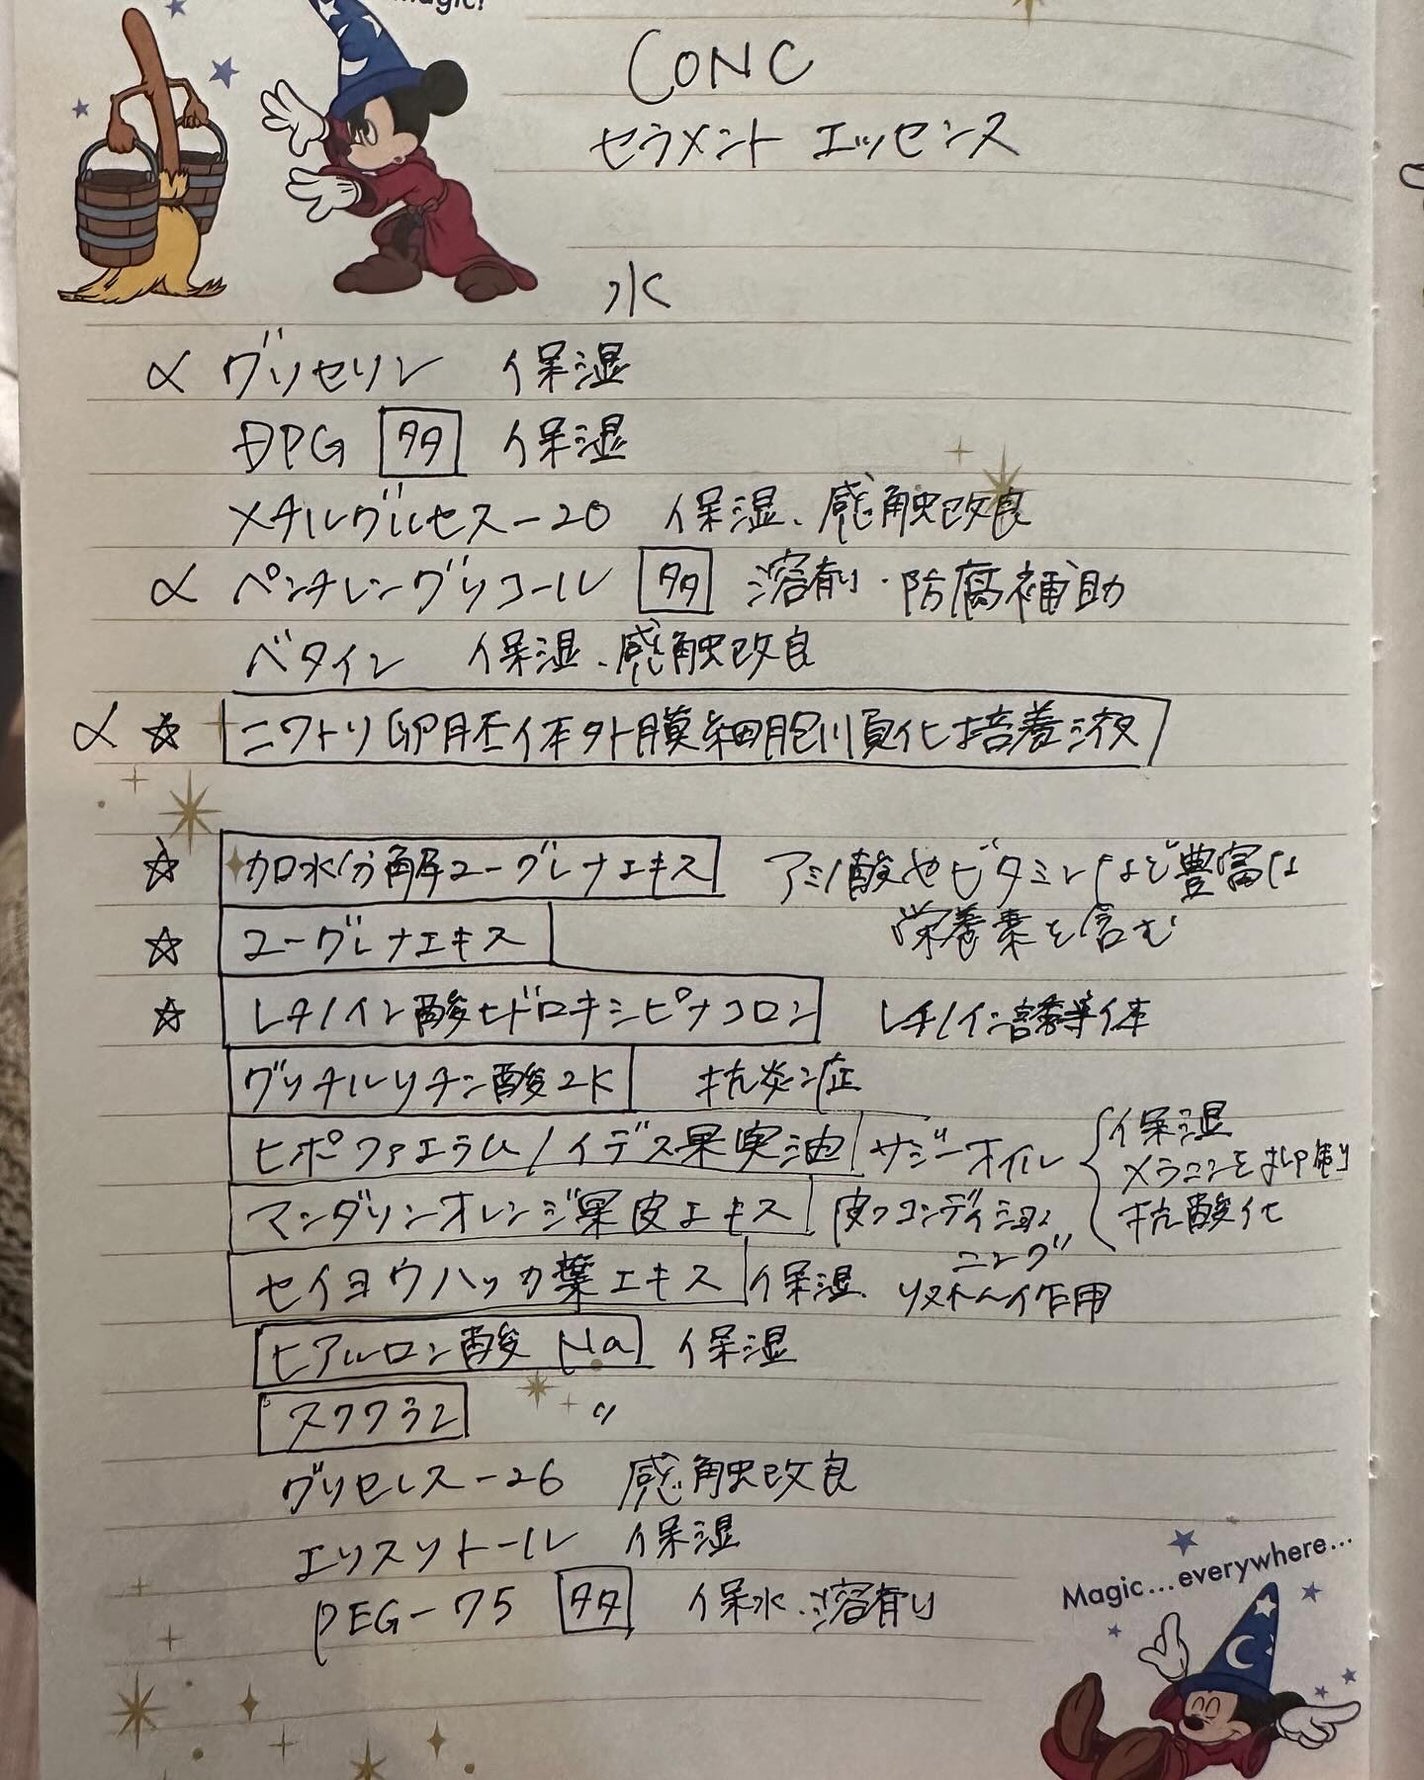 CONC
セラメント エッセンス
水
α グリセリン 保湿
DPG 多 保湿
メチルグルセス-20 保湿、感触改良
α ペンチレングリコール 多 溶剤・防腐補助
ベタイン 保湿、感触改良
α ☆ ニワトリ卵胚体外膜細胞順化培養液
☆ 加水分解ユーグレナエキス アミノ酸やビタミンなど豊富な
栄養素を含む
☆ ユーグレナエキス
☆ レチノイン酸ヒドロキシピナコロン レチノイン誘導体
グリチルリチン酸2K 抗炎症
ヒポファエラムノイデス果実油 サジーオイル { 保湿
メラニンを抑制
抗酸化
マンダリンオレンジ果皮エキス 皮フコンディショ
ニング
セイヨウハッカ葉エキス 保湿、 リストヘイ作用
ヒアルロン酸Na 保湿
スクワラン 〃
グリセレス-26 感触改良
エリスリトール 保湿
PEG-75 多 保水、溶剤
Magic...everywhere...